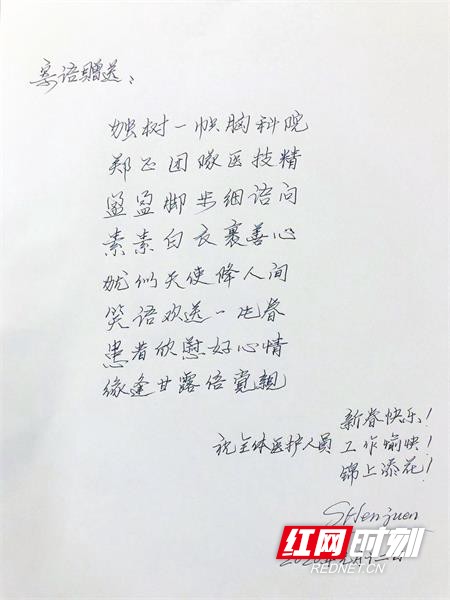 寄语赠送：
独树一帜胸科院
郑正团队医技精
盈盈脚步细语问
素素白衣裹善心
犹似天使降人间
笑语欢送一屯春
患者欣慰好心情
缘逢甘露倍觉亲
新春快乐！
祝全体医护人员 工作愉快！
锦上添花！
红网时刻
REDNET.CN